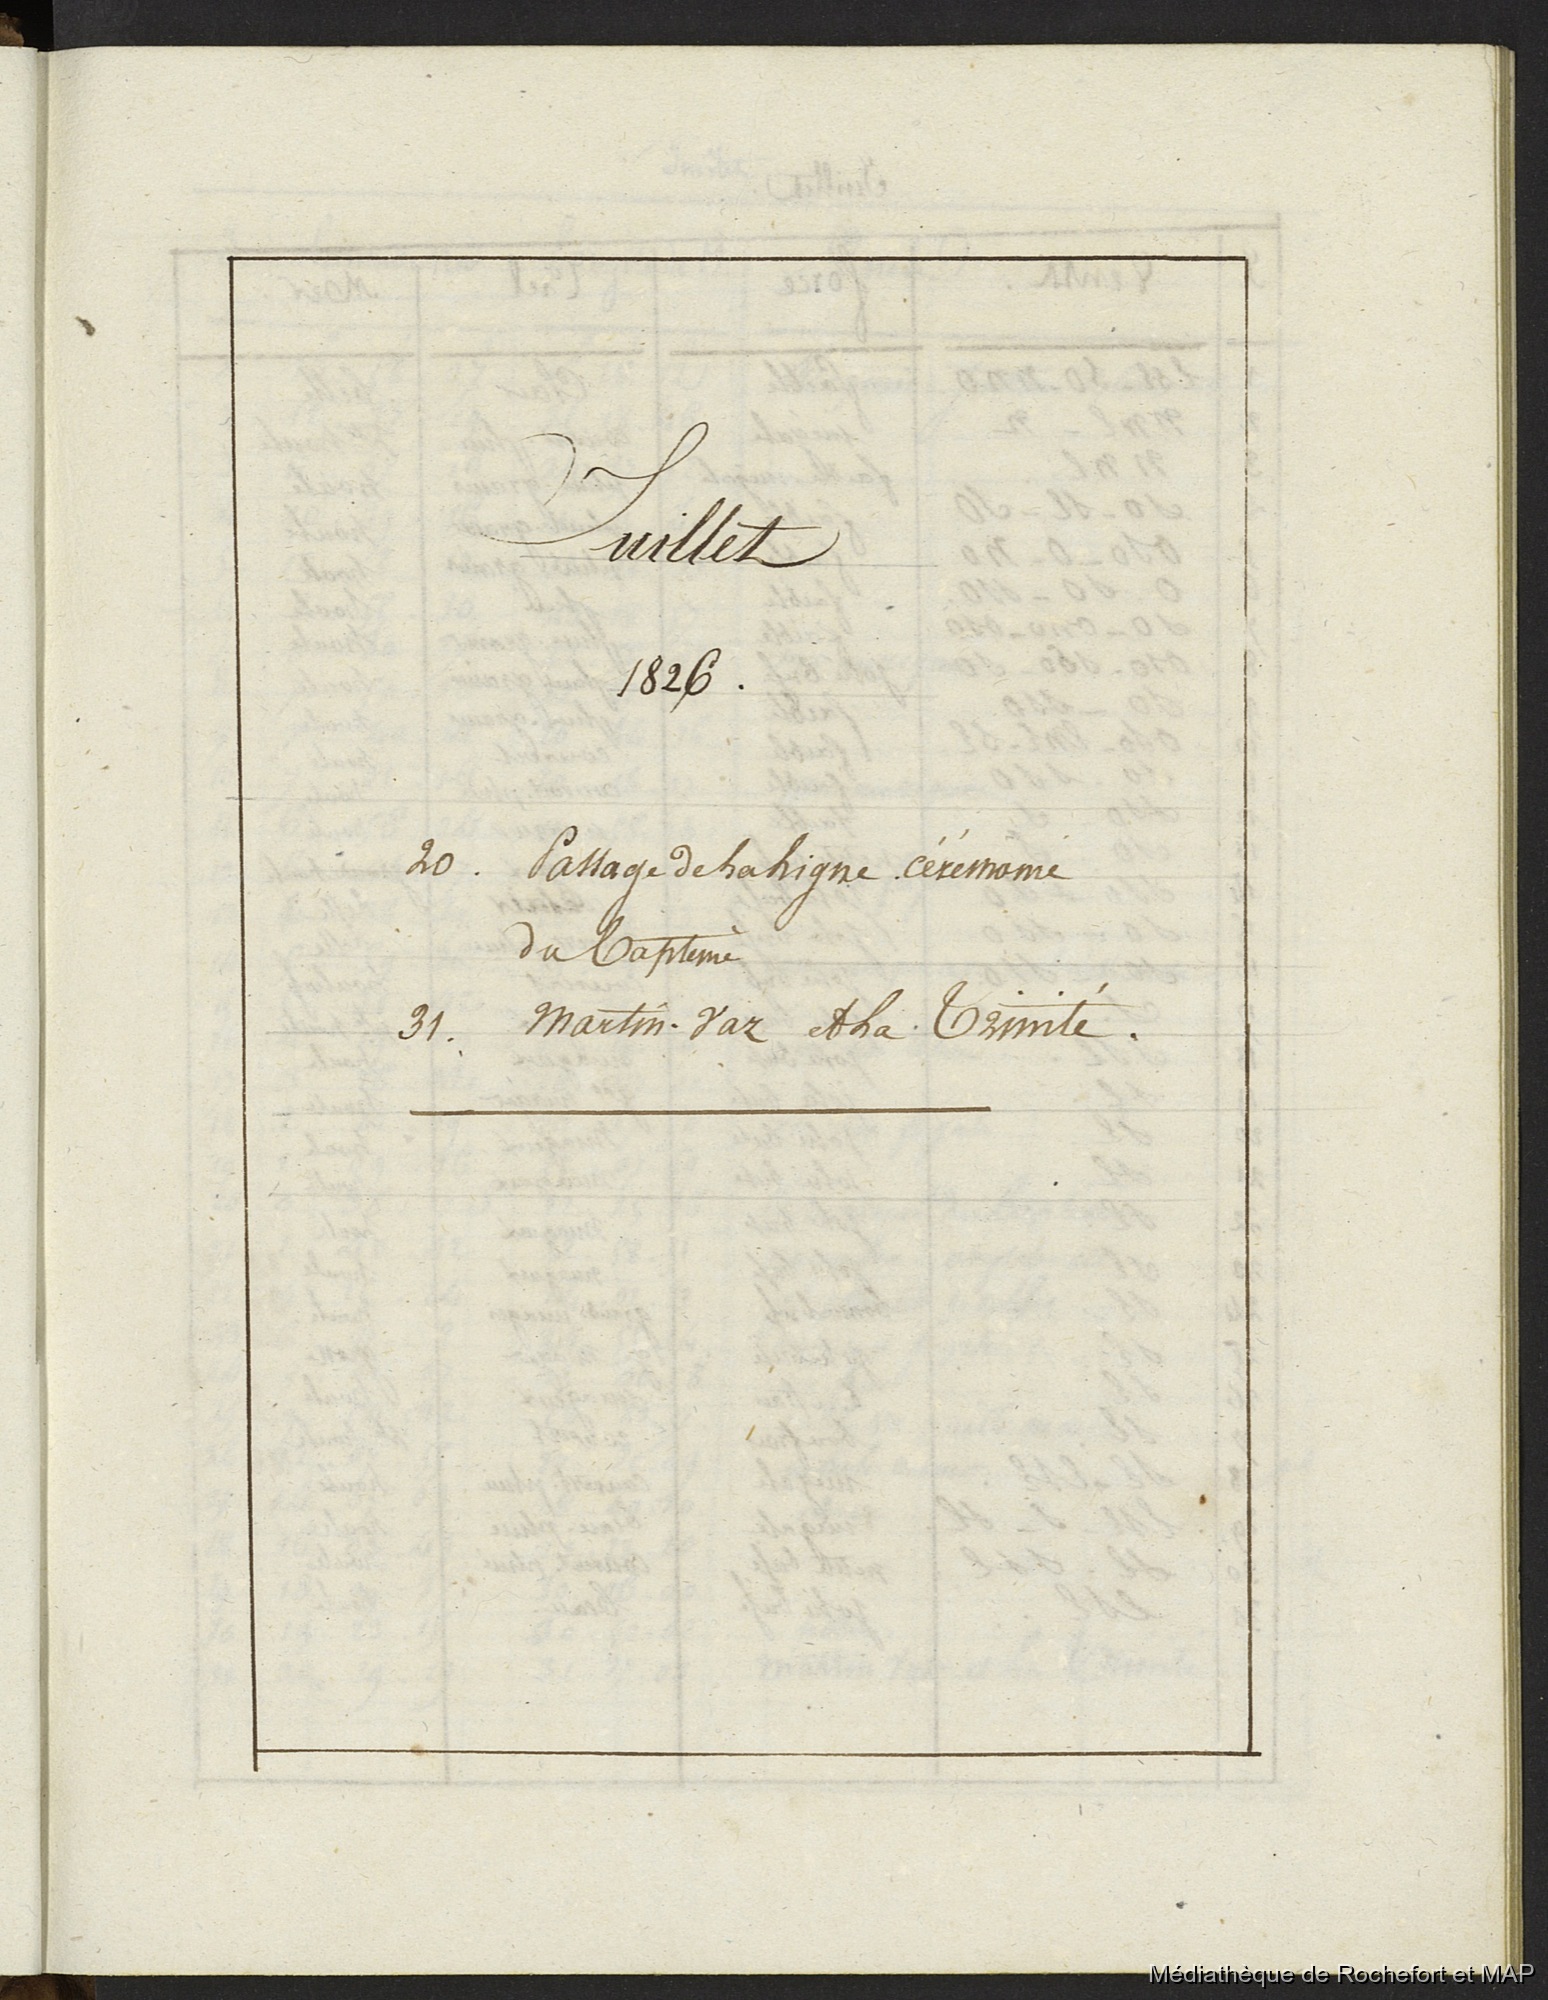 Juillet
1826.
20. Passage de La Ligne. cérémonie
du Baptême
31. Martin-Vaz et La Trinité.
Médiathèque de Rochefort et MAP